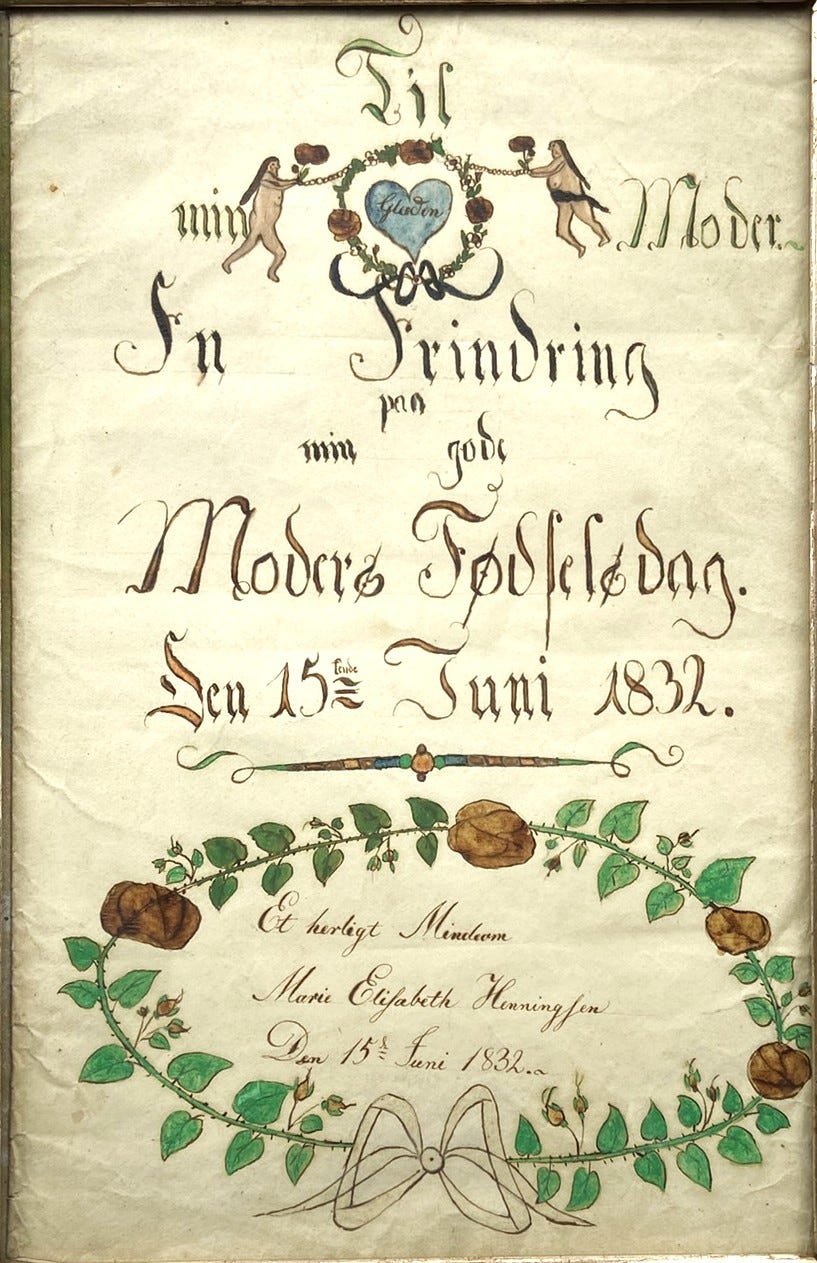 Til
min Glæden Moder.
En Erindring
paa
min gode
Moders Fødselsdag.
Den 15tende Juni 1832.
Et herligt Minde om
Marie Elisabeth Henningsen
Den 15 Juni 1832.